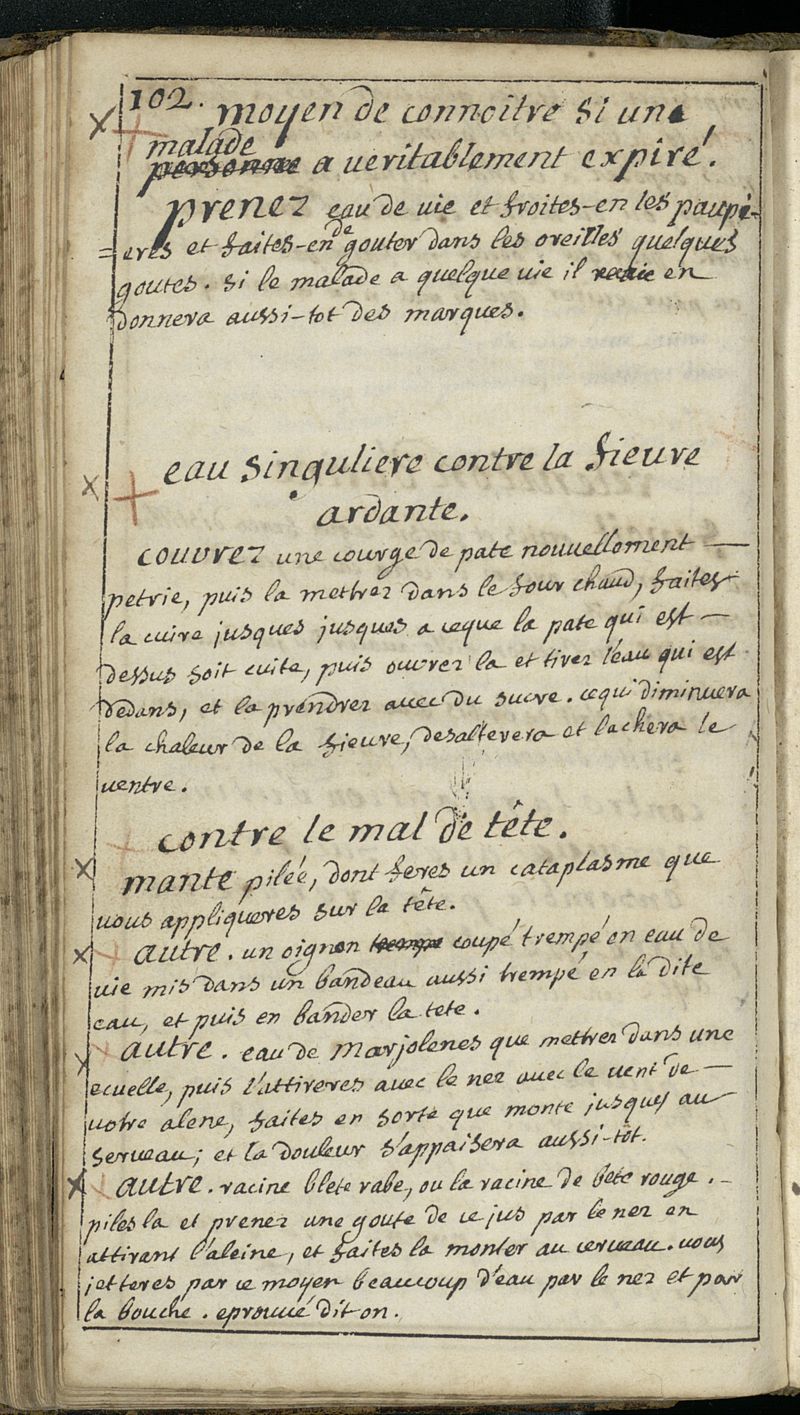 102. moyen de connoitre si une
malade
personne a veritablement expiré.
prenez eau de vie et froites-en les paupi-
=eres et faites-en de gouter dans les oreilles quelques
goutes. si le malade a quelque vie il en
donnera aussi-tot des marques.
eau singuliere contre la fieure
ardante.
couvrez une courge de pate nouuellement —
petrie, puis la mettrez dans le four chaud, faites
la cuire jusques jusques a ceque la pate qui est —
dessus soit cuite, puis ouvrez la et tirez l'eau qui est
dedans, et la prendrez auec du sucre. cequi diminuera
la chaleur de la fieure, desalterera et lachera le
uentre.
contre le mal de tête.
mante pilée, dont feres un cataplasme que
uous appliqueres sur la tête.
autre. un oignon trempe coupé trempé en eau de
uie mis dans un bandeau aussi trempé en la dite
eau, et puis en bander la tete.
autre. eau de marjolenes que mettrez dans une
ecuelle, puis l'attireres auec le nez auec le uent de —
uotre alene, faites en sorte que monte jusques au
serueau; et la douleur s'appaisera aussi-tôt.
autre. racine blete rabe, ou la racine de bete rouge. -
piles la et prenez une goute de ce jus par le nez en
attirant l'aleine, et faites la monter au cerueau. uous
jetteres par ce moyen beaucoup d'eau par le nez et par
la bouche. eprouué dit on.